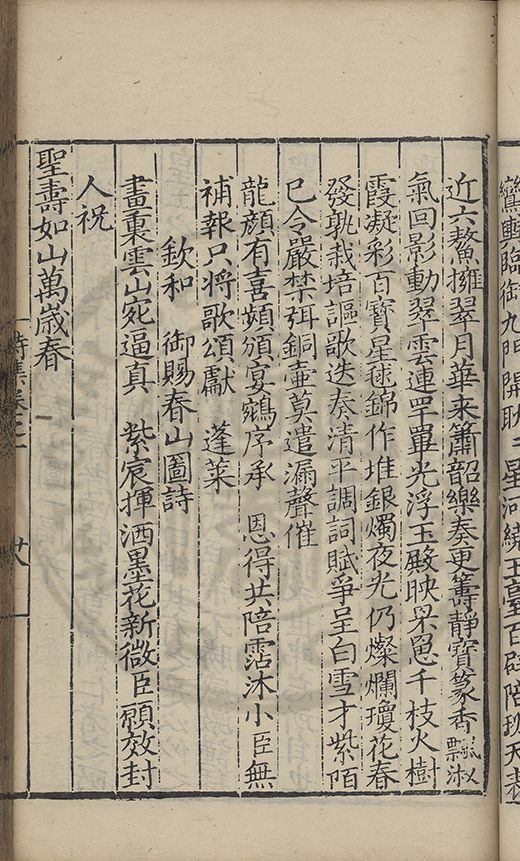 鸞輿臨御九門開耿二星河繞玉臺百辟陪班天表
近六鰲擁翠月華来簫韶樂奏更籌靜寶篆香飄淑
氣回影動翠雲連罕罼光浮玉殿映罘罳千枝火樹
霞凝彩百寶星毬錦作堆銀燭夜光仍燦爛瓊花春
發孰栽培謳歌迭奏清平調詞賦爭呈白雪才紫陌
已令嚴禁弭銅壺莫遣漏聲催
龍顔有喜頻頒宴鵷序承 恩得共陪霑沐小臣無
補報只将歌頌獻 蓬莱
欽和 御賜春山圖詩
畫裏雲山宛逼真 紫宸揮洒墨花新微臣願效封
人祝
聖壽如山萬歳春
詩集卷之一
廿八